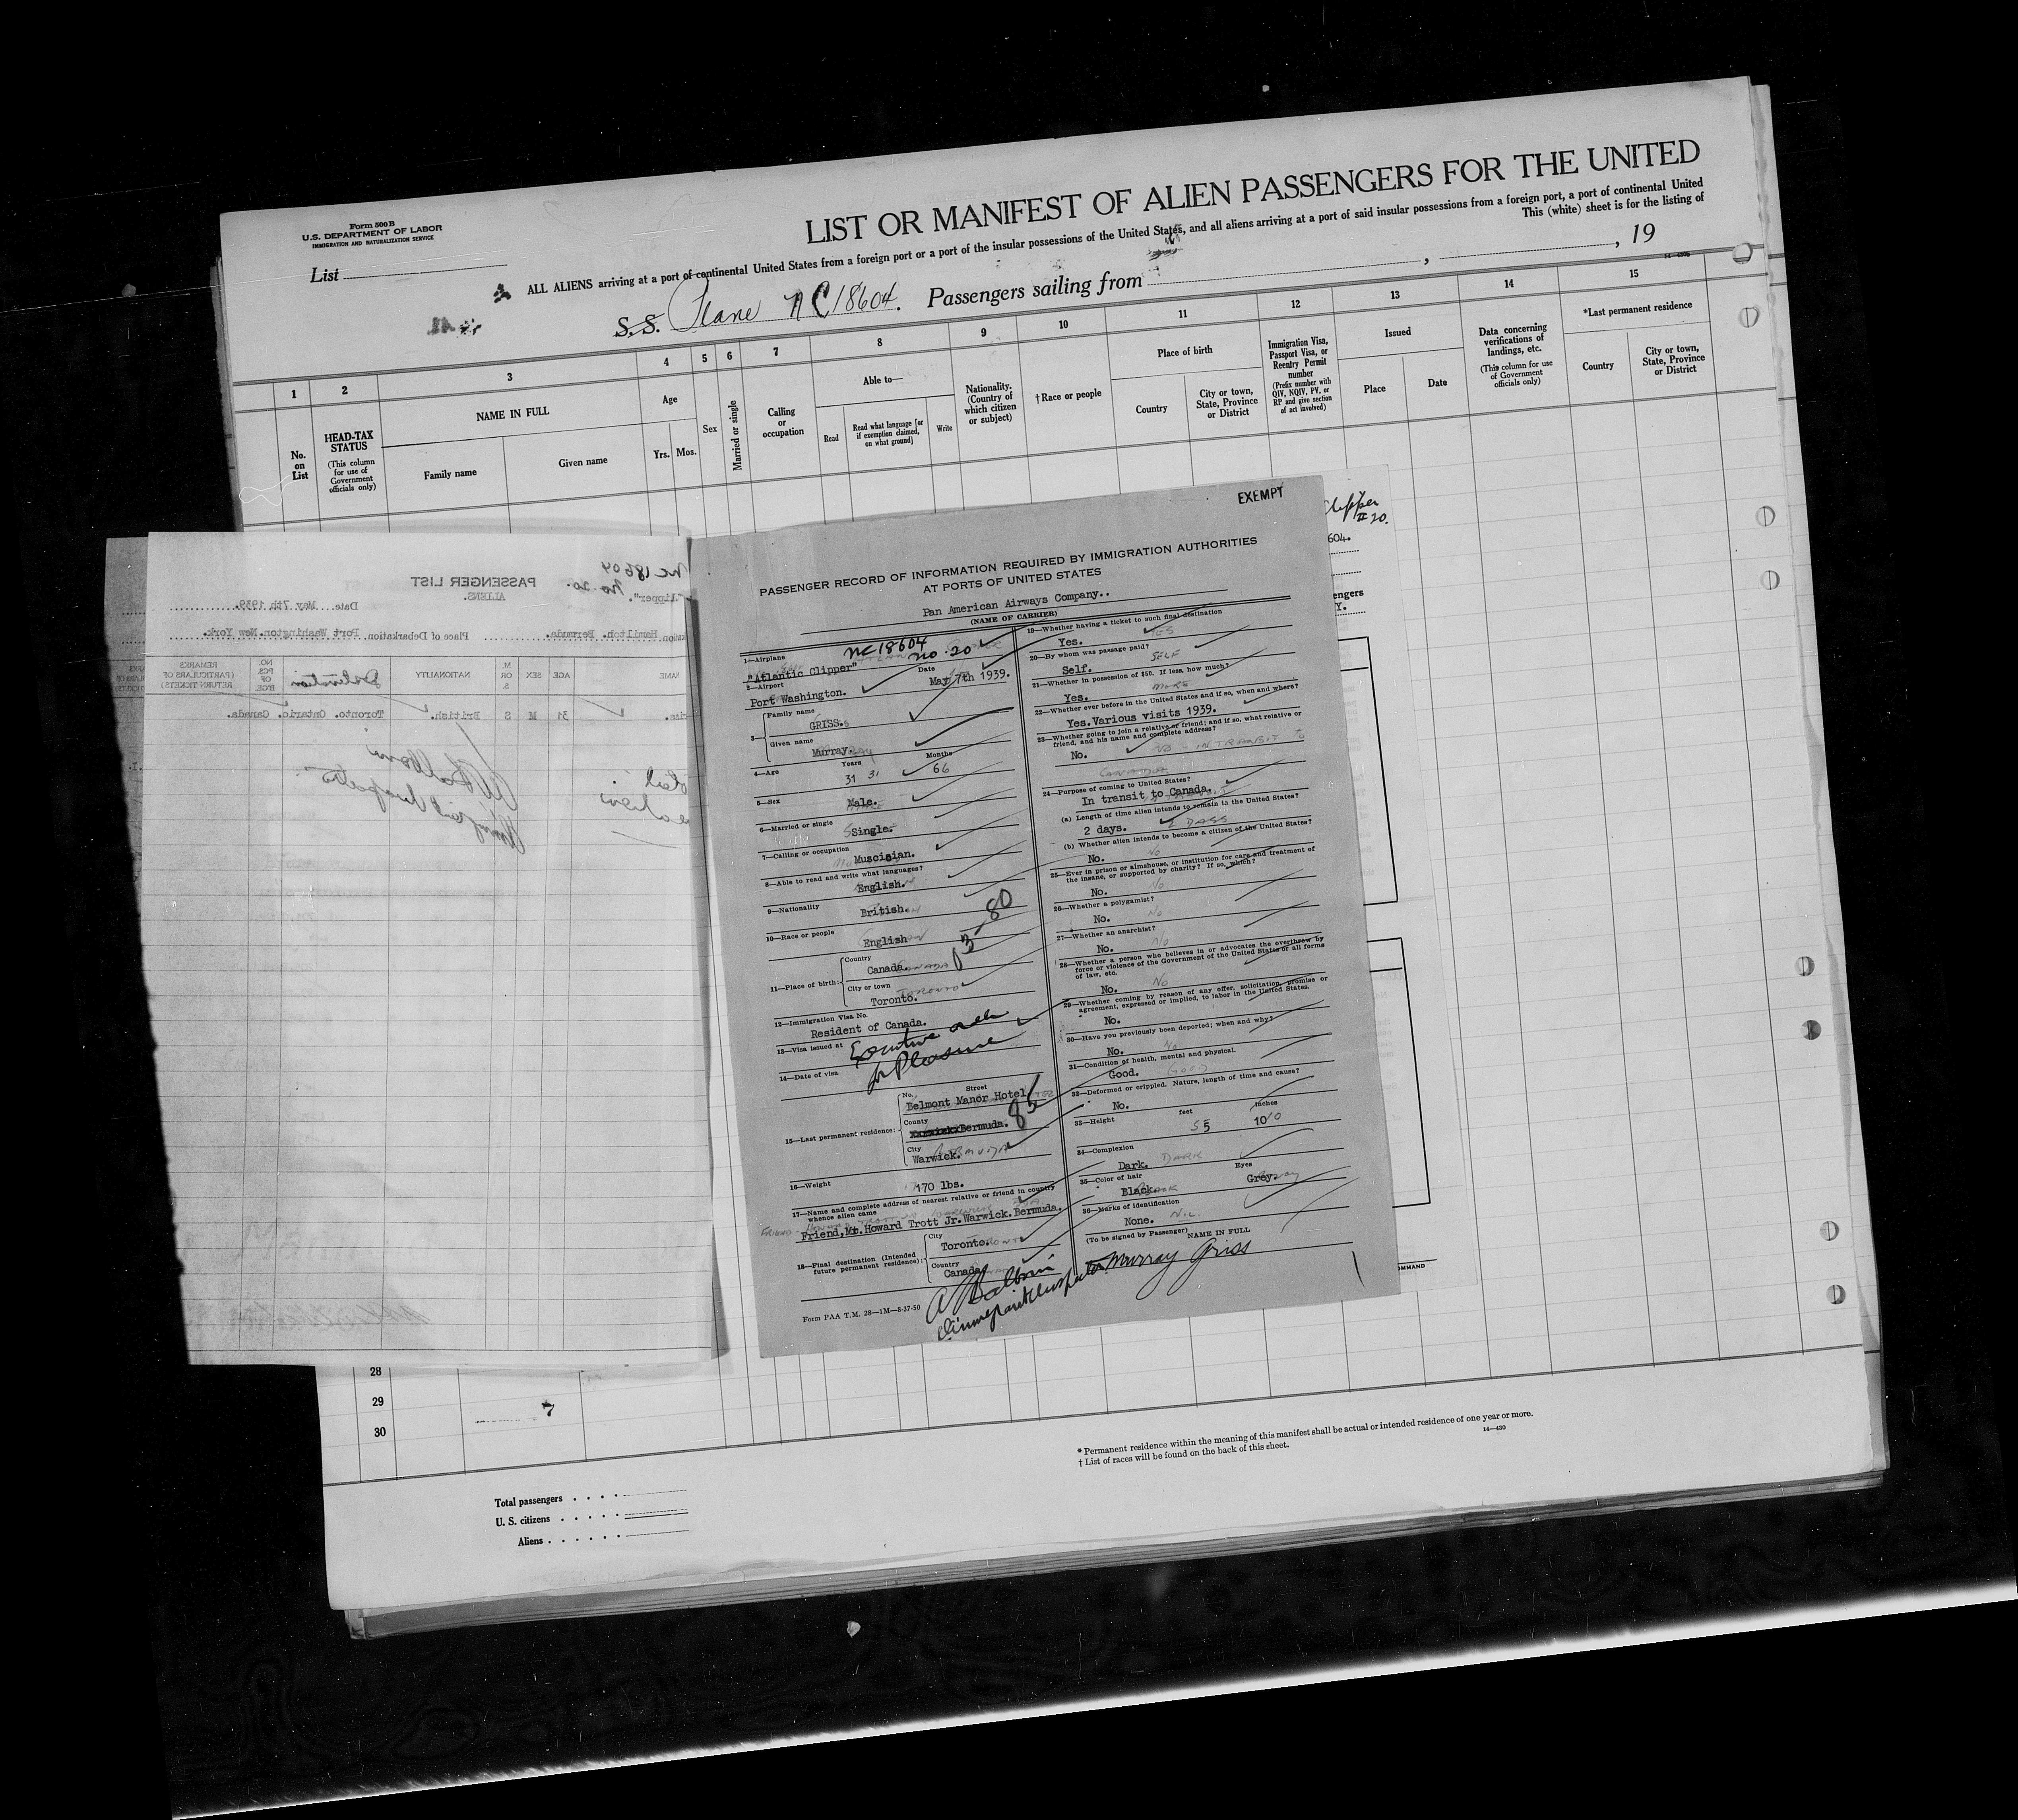 Form 500 B
U.S. DEPARTMENT OF LABOR
IMMIGRATION AND NATURALIZATION SERVICE
List
LIST OR MANIFEST OF ALIEN PASSENGERS FOR THE UNITED
ALL ALIENS arriving at a port of continental United States from a foreign port or a port of the insular possessions of the United States, and all aliens arriving at a port of said insular possessions from a foreign port, a port of continental United
This (white) sheet is for the listing of
S.S. Plane NC18604. Passengers sailing from , , 19
1 2 3 4 5 6 7 8 9 10 11 12 13 14 15
No. on List
HEAD-TAX STATUS
(This column for use of Government officials only)
NAME IN FULL
Family name
Given name
Age
Yrs. Mos.
Sex
Married or single
Calling or occupation
Able to—
Read
Read what language [or if exemption claimed, on what ground]
Write
Nationality. (Country of which citizen or subject)
†Race or people
Place of birth
Country
City or town, State, Province or District
Immigration Visa, Passport Visa, or Reentry Permit number
(Prefix number with QIV, NQIV, PV, or RP and give section of act involved)
Issued
Place
Date
Data concerning verifications of landings, etc.
(This column for use of Government officials only)
*Last permanent residence
Country
City or town, State, Province or District
Clipper
# 20.
604.
engers
Y.
NC18604
No. 20.
PASSENGER LIST
ALIENS.
lipper".
Date May 7th 1939.
Hamilton. Bermuda. Place of Debarkation Port Washington. New York.
NAME
AGE
SEX
M OR S
NATIONALITY
Destination
NO. PCS OF BGGE.
REMARKS (PARTICULARS OF RETURN TICKETS)
31 M S British. Toronto. Ontario. Canada.
EXEMPT
PASSENGER RECORD OF INFORMATION REQUIRED BY IMMIGRATION AUTHORITIES
AT PORTS OF UNITED STATES
Pan American Airways Company..
(NAME OF CARRIER)
NC18604
No. 20
1—Airplane
"Atlantic Clipper"
Date
May 7th 1939.
2—Airport
Port Washington.
3— Family name
GRISS.
Given name
Murray.
4—Age
Years
31 31
Months
66
5—Sex
Male.
6—Married or single
Single.
7—Calling or occupation
Muscisian.
8—Able to read and write what languages?
English.
9—Nationality
British.
10—Race or people
English
80
11—Place of birth:
Country
Canada. CANADA
City or town
Toronto. TORONTO
12—Immigration Visa No.
Resident of Canada.
13—Visa issued at
Executive order
14—Date of visa
for Pleasure
15—Last permanent residence:
No. Street
Belmont Manor Hotel
County
Bermuda.
85
City
Warwick.
16—Weight
170 lbs.
17—Name and complete address of nearest relative or friend in country whence alien came
Friend, Mr. Howard Trott Jr. Warwick. Bermuda.
18—Final destination (Intended future permanent residence):
City
Toronto.
Country
Canada
Form PAA T.M. 28—1M—8-37-50
19—Whether having a ticket to such final destination
Yes. YES
20—By whom was passage paid?
Self. SELF
21—Whether in possession of $50. If less, how much?
Yes. MORE
22—Whether ever before in the United States and if so, when and where?
Yes. Various visits 1939.
23—Whether going to join a relative or friend; and if so, what relative or friend, and his name and complete address?
No. NO - IN TRANSIT TO
CANADA
24—Purpose of coming to United States?
In transit to Canada.
(a) Length of time alien intends to remain in the United States?
2 days. 2 DAYS
(b) Whether alien intends to become a citizen of the United States?
No. No
25—Ever in prison or almshouse, or institution for care and treatment of the insane, or supported by charity? If so, which?
No. No
26—Whether a polygamist?
No. No
27—Whether an anarchist?
No. No
28—Whether a person who believes in or advocates the overthrow by force or violence of the Government of the United States or all forms of law, etc.
No. No
29—Whether coming by reason of any offer, solicitation, promise or agreement, expressed or implied, to labor in the United States.
No.
30—Have you previously been deported; when and why?
No. No
31—Condition of health, mental and physical.
Good. GOOD
32—Deformed or crippled. Nature, length of time and cause?
No.
33—Height
feet
5 5
inches
10 10
34—Complexion
Dark. DARK
35—Color of hair
Black.
Eyes
Grey.
36—Marks of identification
None. NIL.
(To be signed by Passenger) NAME IN FULL
Murray Griss
Immigrant Inspector
OMMAND
28
29
30
Total passengers
U. S. citizens
Aliens
* Permanent residence within the meaning of this manifest shall be actual or intended residence of one year or more.
† List of races will be found on the back of this sheet.
14—430